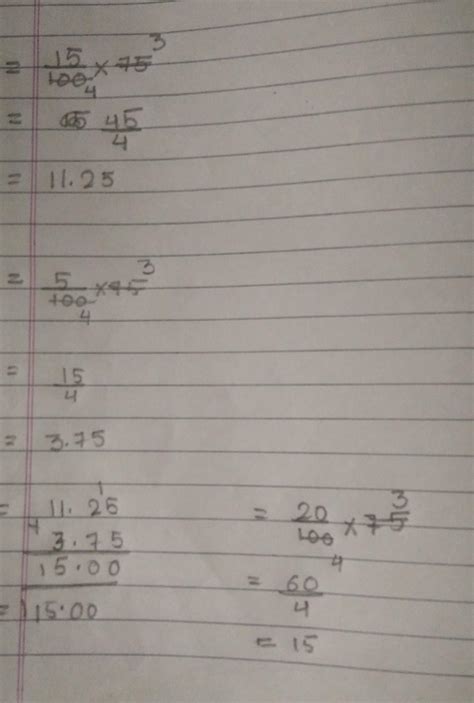 = 15/100 4 × 75 3
= 45/4
= 11.25
= 5/100 4 × 75 3
= 15/4
= 3.75
1
= 11.25
+ 3.75
15.00
= 15.00
= 20/100 4 × 75 3
= 60/4
= 15